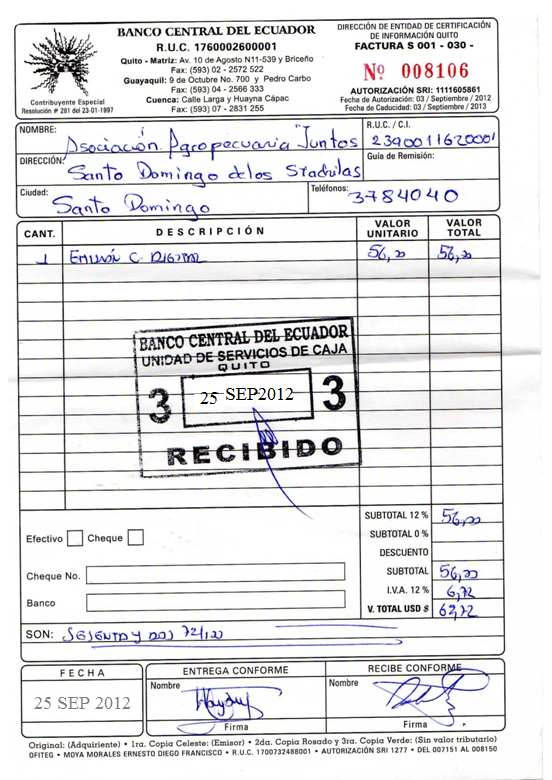 BANCO CENTRAL DEL ECUADOR
R.U.C. 1760002600001
Quito - Matriz: Av. 10 de Agosto N11-539 y Briceño
Fax: (593) 02 - 2572 522
Guayaquil: 9 de Octubre No. 700 y Pedro Carbo
Fax: (593) 04 - 2566 333
Cuenca: Calle Larga y Huayna Cápac
Fax: (593) 07 - 2831 255
Contribuyente Especial
Resolución # 281 del 23-01-1997
DIRECCIÓN DE ENTIDAD DE CERTIFICACIÓN
DE INFORMACIÓN QUITO
FACTURA S 001 - 030 -
Nº 008106
AUTORIZACIÓN SRI: 1111605861
Fecha de Autorización: 03 / Septiembre / 2012
Fecha de Caducidad: 03 / Septiembre / 2013
NOMBRE: Asociación Agropecuaria "Juntos
R.U.C. / C.I. 2390011620001
DIRECCIÓN: Santo Domingo de los
Guía de Remisión:
Ciudad: Santo Domingo
Teléfonos: 3784040
CANT. DESCRIPCIÓN VALOR UNITARIO VALOR TOTAL
1 EMISIÓN C. DIGITAL 56,00 56,00
BANCO CENTRAL DEL ECUADOR
UNIDAD DE SERVICIOS DE CAJA
QUITO
3 25 SEP2012 3
RECIBIDO
SUBTOTAL 12 % 56,00
Efectivo Cheque
SUBTOTAL 0 %
DESCUENTO
Cheque No.
SUBTOTAL 56,00
I.V.A. 12 % 6,72
Banco
V. TOTAL USD $ 62,72
SON: SESENTA Y DOS 72/100
FECHA
25 SEP 2012
ENTREGA CONFORME
Nombre
Firma
RECIBE CONFORME
Nombre
Firma
Original: (Adquiriente) • 1ra. Copia Celeste: (Emisor) • 2da. Copia Rosado y 3ra. Copia Verde: (Sin valor tributario)
OFITEG • MOYA MORALES ERNESTO DIEGO FRANCISCO • R.U.C. 1700732488001 • AUTORIZACIÓN SRI 1277 • DEL 007151 AL 008150